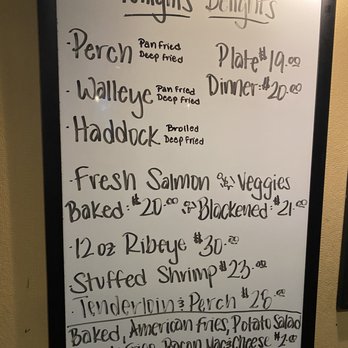 Tonights Delights
· Perch Pan Fried
Deep Fried
Plate $19.00
· Walleye Pan Fried
Deep Fried
Dinner: $20.00
· Haddock Broiled
Deep Fried
· Fresh Salmon Veggies
Baked: $20.00 Blackened: $21.00
· 12 oz Ribeye $30.00
· Stuffed Shrimp $23.00
· Tenderloin & Perch $28.00
Baked, American Fries, Potato Salad
Bacon Mac & Cheese